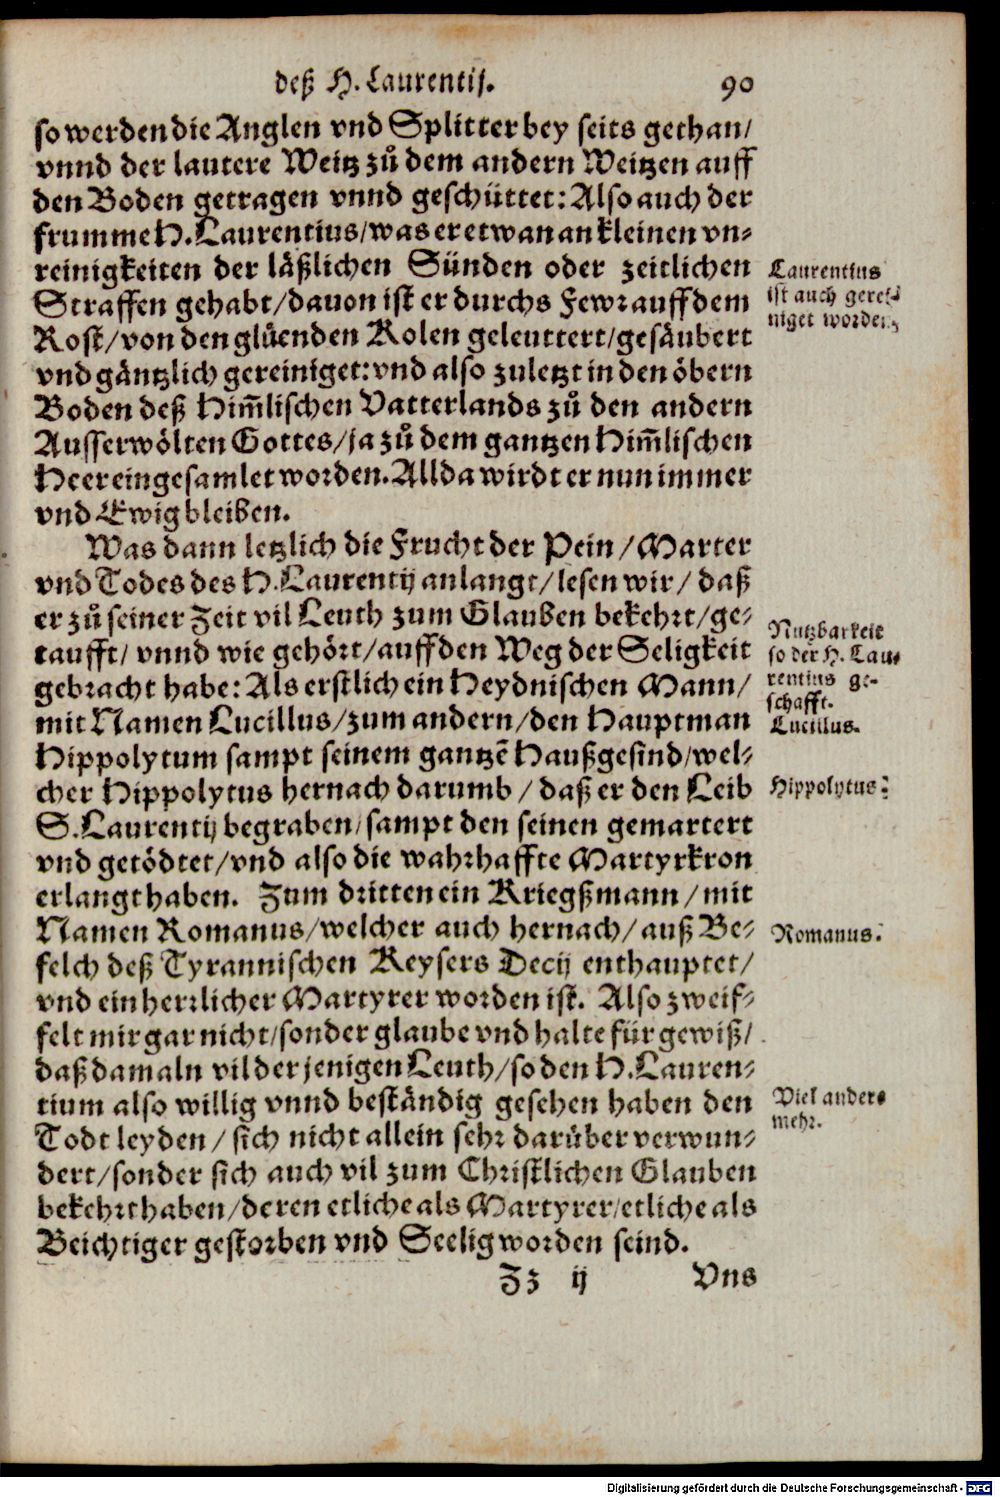 deß H. Laurentij.
90
so werden die Anglen vnd Splitter bey seits gethan/
vnnd der lautere Weitz zů dem andern Weitzen auff
den Boden getragen vnnd geschüttet: Also auch der
frumme H. Laurentius/was er etwan an kleinen vn-
reinigkeiten der läßlichen Sünden oder zeitlichen
Straffen gehabt/dauon ist er durchs Fewr auff dem
Rost/von den glüenden Kolen geleuttert/gesäubert
vnd gäntzlich gereiniget: vnd also zuletzt in den öbern
Boden deß Him̃lischen Vatterlands zů den andern
Ausserwölten Gottes/ja zů dem gantzen Him̃lischen
Heer eingesamlet worden. Allda wirdt er nun immer
vnd Ewig bleiben.
Laurentius
ist auch gerei-
niget worden.
Was dann letzlich die Frucht der Pein/Marter
vnd Todes des H. Laurentij anlangt/lesen wir/daß
er zů seiner Zeit vil Leuth zum Glauben bekehrt/ge-
taufft/vnnd wie gehört/auff den Weg der Seligkeit
gebracht habe: Als erstlich ein Heydnischen Mann/
mit Namen Lucillus/zum andern/den Hauptman
Hippolytum sampt seinem gantzẽ Haußgesind/wel-
cher Hippolytus hernach darumb/daß er den Leib
S. Laurentij begraben/sampt den seinen gemartert
vnd getödtet/vnd also die wahrhaffte Martyrkron
erlangt haben. Zum dritten ein Kriegßmann/mit
Namen Romanus/welcher auch hernach/auß Be-
felch deß Tyrannischen Keysers Decij enthauptet/
vnd ein herrlicher Martyrer worden ist. Also zweif-
felt mir gar nicht/sonder glaube vnd halte für gewiß/
daß damaln vil der jenigen Leuth/so den H. Lauren-
tium also willig vnnd beständig gesehen haben den
Todt leyden/sich nicht allein sehr darüber verwun-
dert/sonder sich auch vil zum Christlichen Glauben
bekehrt haben/deren etliche als Martyrer/etliche als
Beichtiger gestorben vnd Seelig worden seind.
Nutzbarkeit
so der H. Lau-
rentius ge-
schafft.
Lucillus.
Hippolytus.
Romanus.
Viel anders
mehr.
Zz ij
Vns
Digitalisierung gefördert durch die Deutsche Forschungsgemeinschaft - DFG